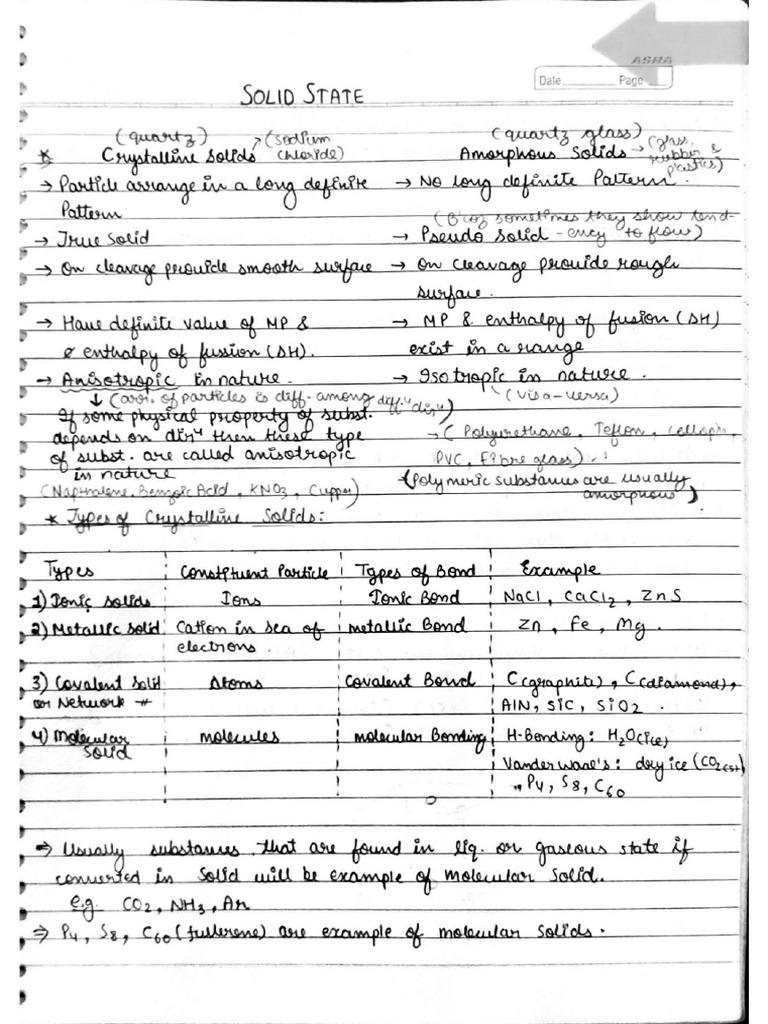 ASRA
Date Page
SOLID STATE
(quartz) → (Sodium chloride)
* Crystalline Solids
(quartz glass)
Amorphous Solids → (glass, rubber & plastics)
→ Particle arrange in a long definite Pattern
→ No long definite Pattern.
→ True Solid
(B'coz sometimes they show tend-
→ Pseudo Solid -ency to flow)
→ On cleavage provide smooth surface
→ On cleavage provide rough surface.
→ Have definite value of MP &
enthalpy of fussion (ΔH).
→ MP & enthalpy of fusion (ΔH)
exist in a range
→ Anisotropic in nature.
→ Isotropic in nature.
↓ (arr. of particles is diff. among diff.ⁿ dirⁿ)
(visa-versa)
If some physical property of subst.
depends on dirⁿ then these type
of subst. are called anisotropic
in nature
(Napthalene, Benzoic Acid, KNO3, Cupper)
→ (Polyurethane, Teflon, Celloph,
PVC, Fibre glass)
(Polymeric substances are usually
amorphous)
* Types of Crystalline Solids:
Types Constituent Particle Types of Bond Example
1) Ionic solids Ions Ionic Bond NaCl, CaCl2, ZnS
2) Metallic Solid Cation in sea of electrons. metallic Bond Zn, Fe, Mg.
3) Covalent Solid or Network Atoms Covalent Bond C(graphite), C(diamond), AlN, SiC, SiO2.
4) Molecular Solid molecules molecular Bonding H-Bonding: H2O(ice)
Vander Waal's: dry ice (CO2(s))
" P4, S8, C60
⇒ Usually substances that are found in liq. or gaseous state if
converted in Solid will be example of Molecular Solid.
e.g. CO2, NH3, Ar
⇒ P4, S8, C60 (fullerene) are example of molecular Solids.